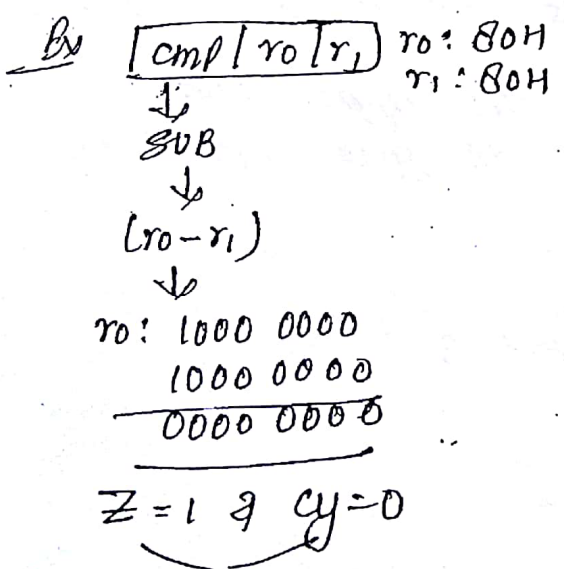 Ex | cmp | r0 | r1 | r0: 80H
r1: 80H
↓
SUB
↓
(r0 - r1)
↓
r0: 1000 0000
1000 0000
0000 0000
Z = 1 & Cy = 0